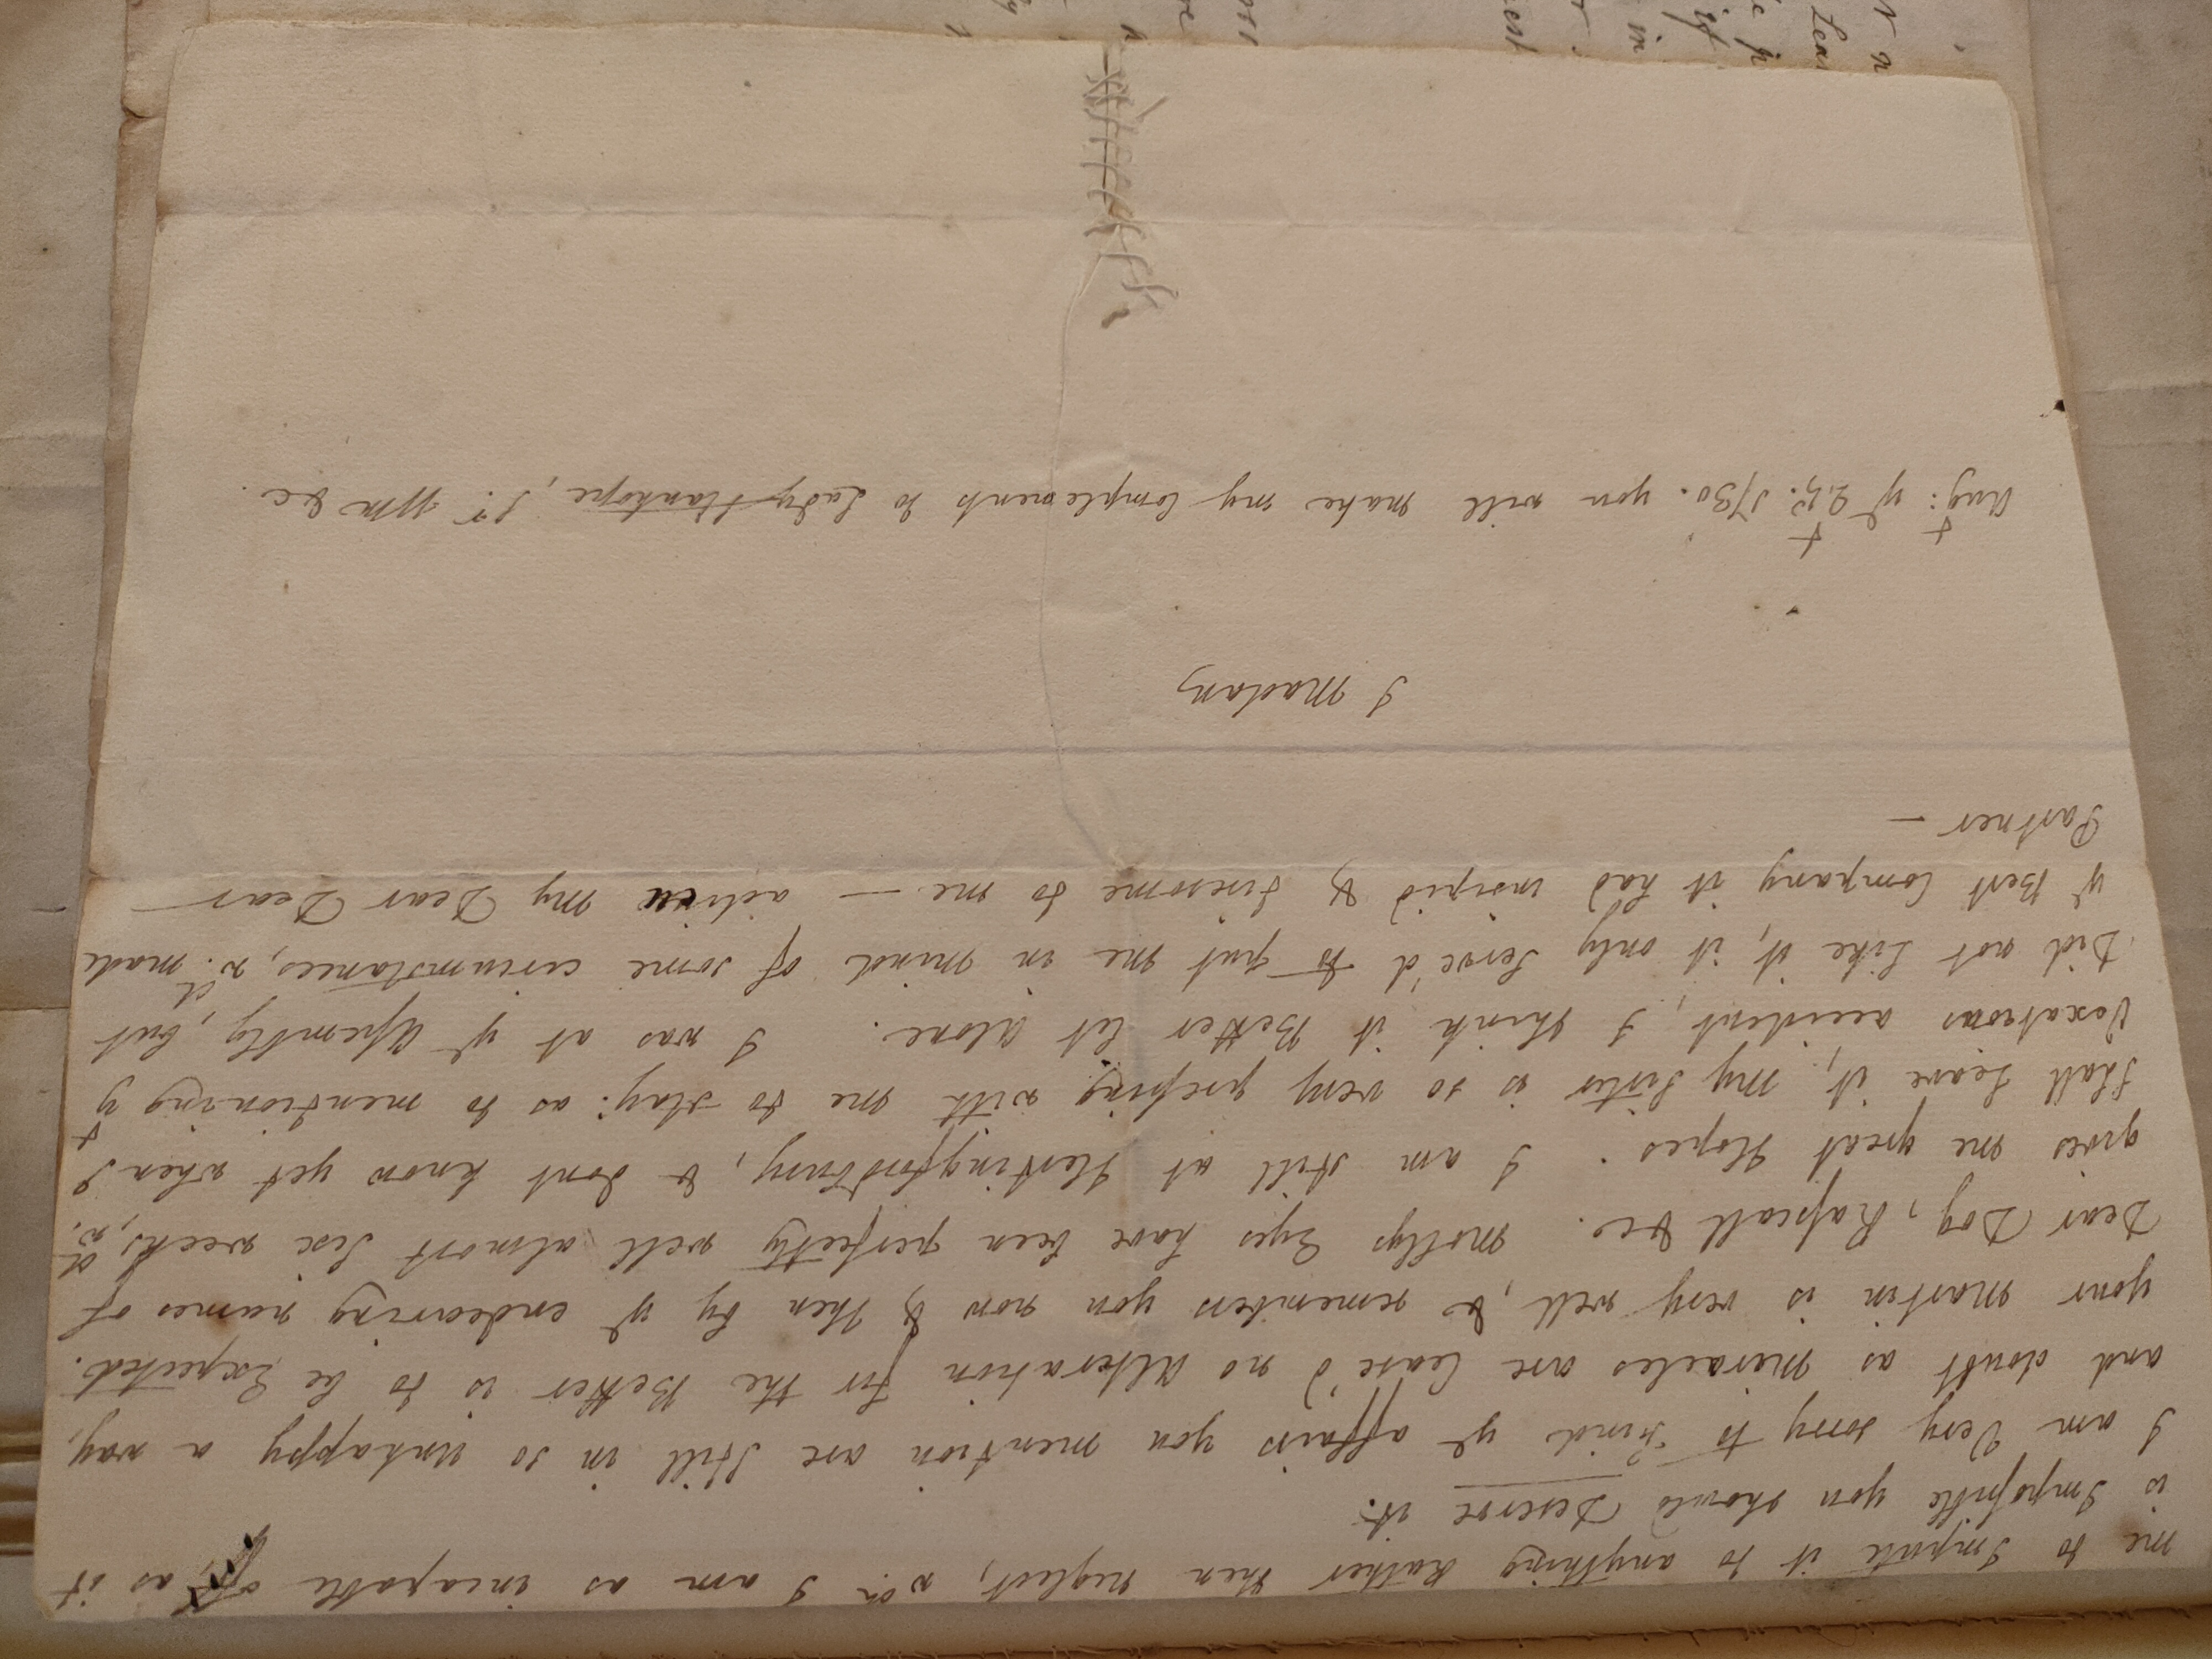 me to Impute it to anything Rather then neglect, wch. I am as incapable off, as it
is Impossible you should Deserve it.
I am Very sorry to Find ye affairs you mention are Still in so unhappy a way,
and doubt as Miracles are Cease'd no Alteration for the Better is to be Expected.
your Martin is very well, & remembers you now & then by ye endearing names of
Dear Dog, Rasscall &c. Mollys Eyes have been perfectly well almost Six weeks, wch.
gives me great Hopes. I am still at Hertingfordbury, & dont know yet when I
Shall Leave it, My Sister is so very pressing with me to stay: as to mentioning yt
Vexatious accident, I think it Better let Alone. I was at ye Assembly, but
Did not Like it, it only Serve'd to put me in mind of some circumstances, wch. made
ye Best Company it had insipid & tiresome to me — adieu My Dear Dear
Partner —
J Madan
Augt: ye 25t. 1730. you will make my Complements to Lady Stanhope, Sr. Wm &c.